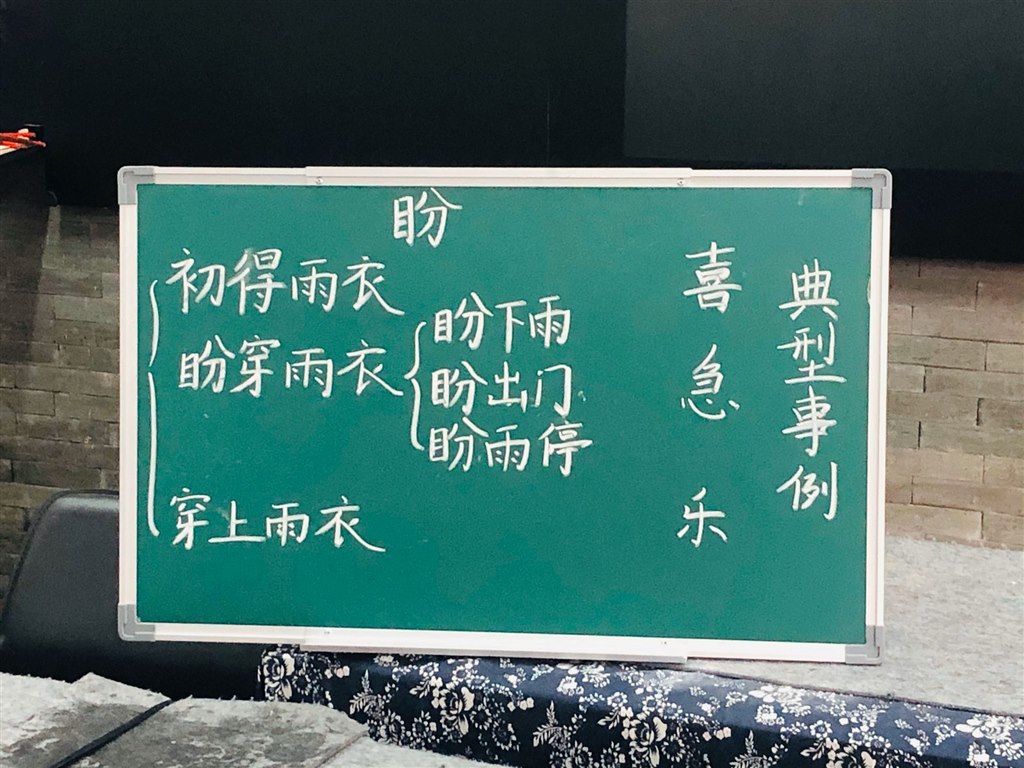 盼
初得雨衣
盼穿雨衣
盼下雨
盼出门
盼雨停
穿上雨衣
喜
急
乐
典型事例